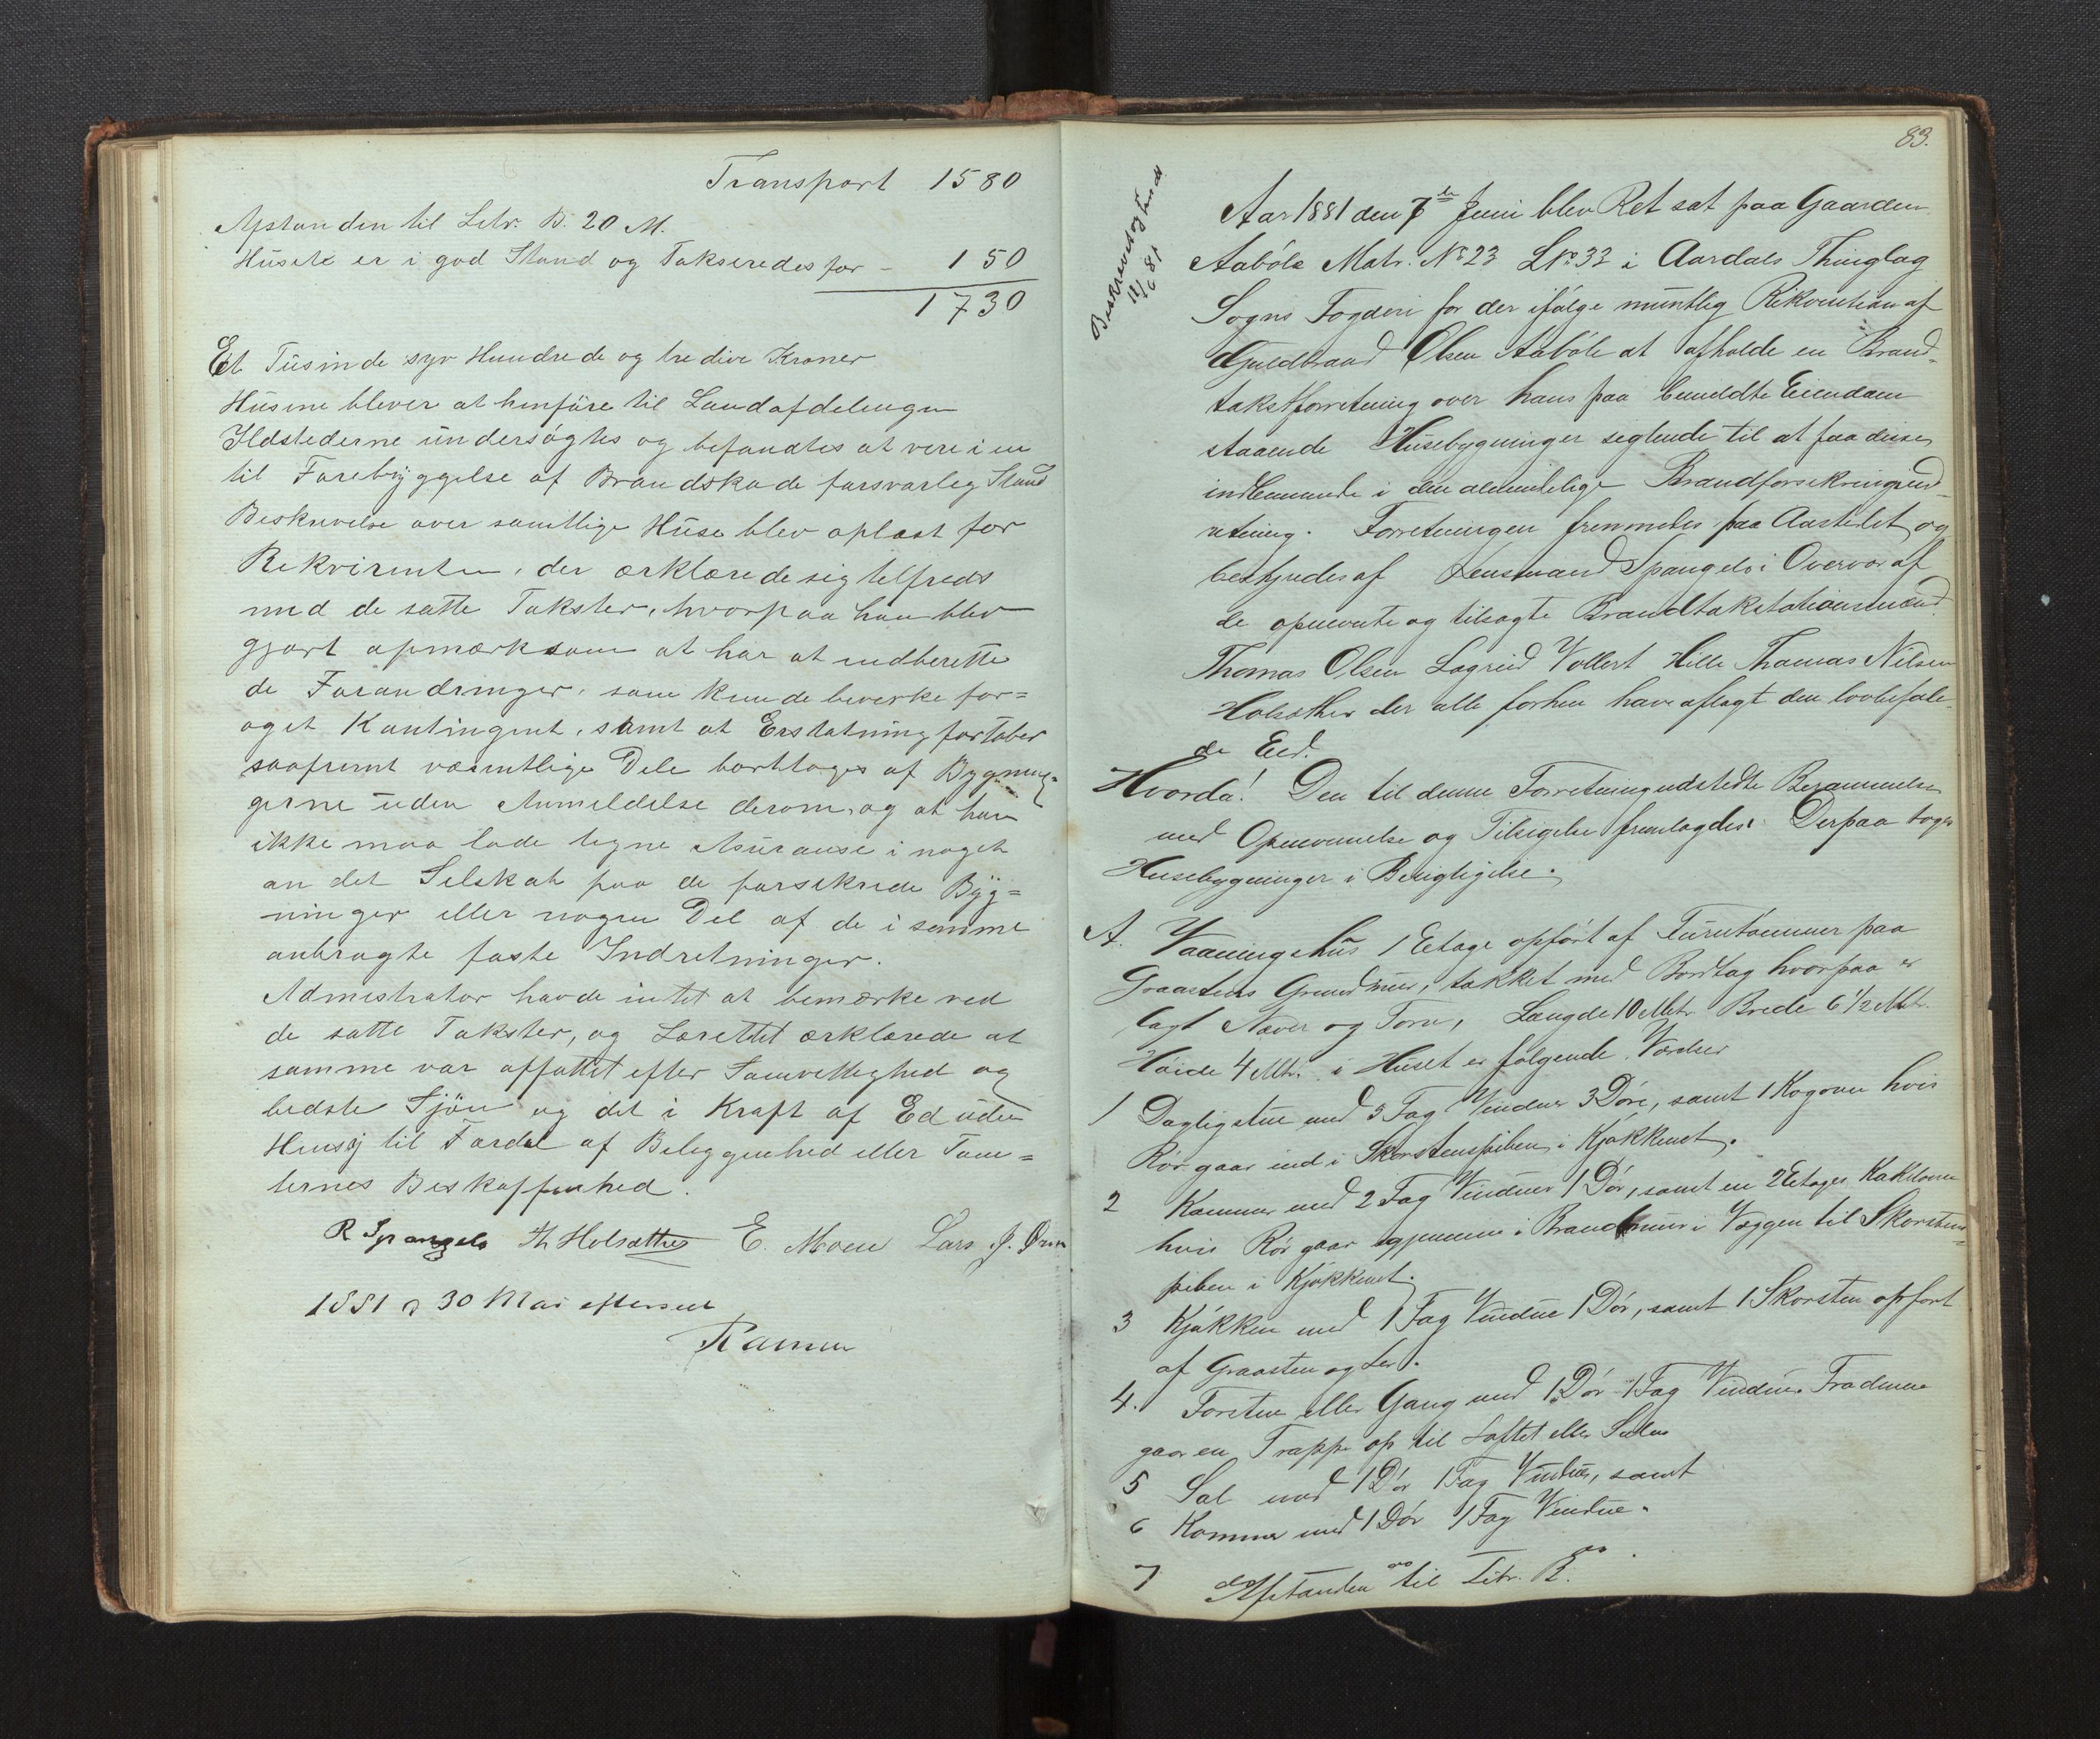 Transport 1580
Afstanden til Litr. B. 20 M.
Husete er i god Stand og Takseredes for - 150
1730
Et Tusinde syv Hundrede og tredive Kroner
Husene bliver at henføre til Landafdelingen
Ildstederne undersøgtes og befandtes at vere i en
til Forebyggelse af Brandskade forsvarleg Stand
Beskrivelse over samtlige Huse blev oplæst for
Rekvirenten, der erklærede sig tilfreds
med de satte Takster, hvorpaa han blev
gjort opmærksom at har at indberette
de Forandringer, som kunde bevirke for=
øget Kontingent, samt at Erstatning fortabes
saafremt væsentlige Dele borttages af Bygnin=
gerne uden Anmeldelse derom, og at han
ikke maa lade tegne Assuranse i noget
an det Selskab paa de forsikrede Byg=
ninger eller nogen Del af de i samme
anbragte faste Indretninger.
Admistrator havde intet at bemærke ved
de satte Takster, og Lavrettet erklærede at
samme var affattet efter Samvittighed og
bedste Skjøn og det i Kraft af Ed uden
Hensÿ til Fordel af Beleggenhed eller Tom=
ternes Beskaffenhed.
R Spangelo Th Holsæther E. Moen Lars J. Øren
1881 d 30 Mai efterseet
Ramm
83.
Beskrevet og tvedt
11/6 81
Aar 1881 den 7de Juni blev Ret sat paa Gaarden
Aabøle Matr. No 23 LNo 33 i Aardals Thinglag
Sogns Fogderi for der ifølge muntlig Rekvisition af
Guldbrand Olsen Aabøle at afholde en Brand-
takstforretning over hans paa bemeldte Eiendom
staaende Husebygninger sigtende til at faa disse
indlemmede i den almindelige Brandforsikringsind-
retning. Forretningen fremmedes paa Aastedet og
bestyredes af Lensmand Spangelo i Overvær af
de opnevnte og tilsagte Brandtakstationsmænd
Thomas Olsen Lægreid Vollert Hille Thomas Nilsen
Holsæther der alle forhen have aflagt den lovbefale-
de Eed.
Hvorda! Den til denne Forretning udstedte Berammelse
med Opnevnelse og Tilsigelse fremlagdes. Derpaa toges
Husebygninger i Besigtigelse.
A. Vaaningshus 1 Etage opført af Furutømmer paa
Graastens Grundmur, takket med Bordtag hvorpaa er
lagt Næver og Torv, Længde 10 Mtr. Brede 6 1/2 Mtr.
Høide 4 Mtr. i Huset er følgende Værelser
1 Dagligstue med 3 Fag Vinduer 3 Døre, samt 1 Kogovn hvis
Rør gaar ind i Skorstenspiben i Kjøkkenet.
2 Kammer med 2 Fag Vinduer 1 Dør, samt en 2 Etages Kakkelovn
hvis Rør gaar igjennem i Brandmur i Væggen til Skorstens-
piben i Kjøkkenet.
3 Kjøkken med 1 Fag Vindue 1 Dør, samt 1 Skorsten opført
af Graasten og Ler.
4. Forstue eller Gang med 1 Dør 1 Fag Vindue. Fra denne
gaar en Trappe op til Loftet eller Salen
5 Sal med 1 Dør 1 Fag Vindue, samt
6 Kammer med 1 Dør 1 Fag Vindue.
7 do do do
Afstanden til Litr. B.